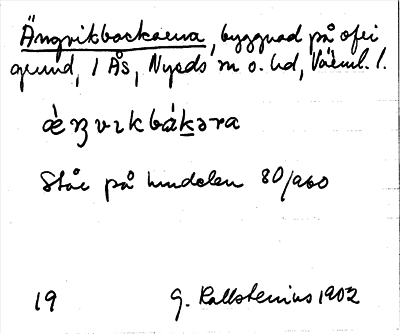 Ängvikbackarna, byggnad på ofri
grund, i Ås, Nyeds sn o. hd, Värml. l.
ǽŋvıkbákəra
Står på hundelen 80/960
19 G. Kallstenius 1902